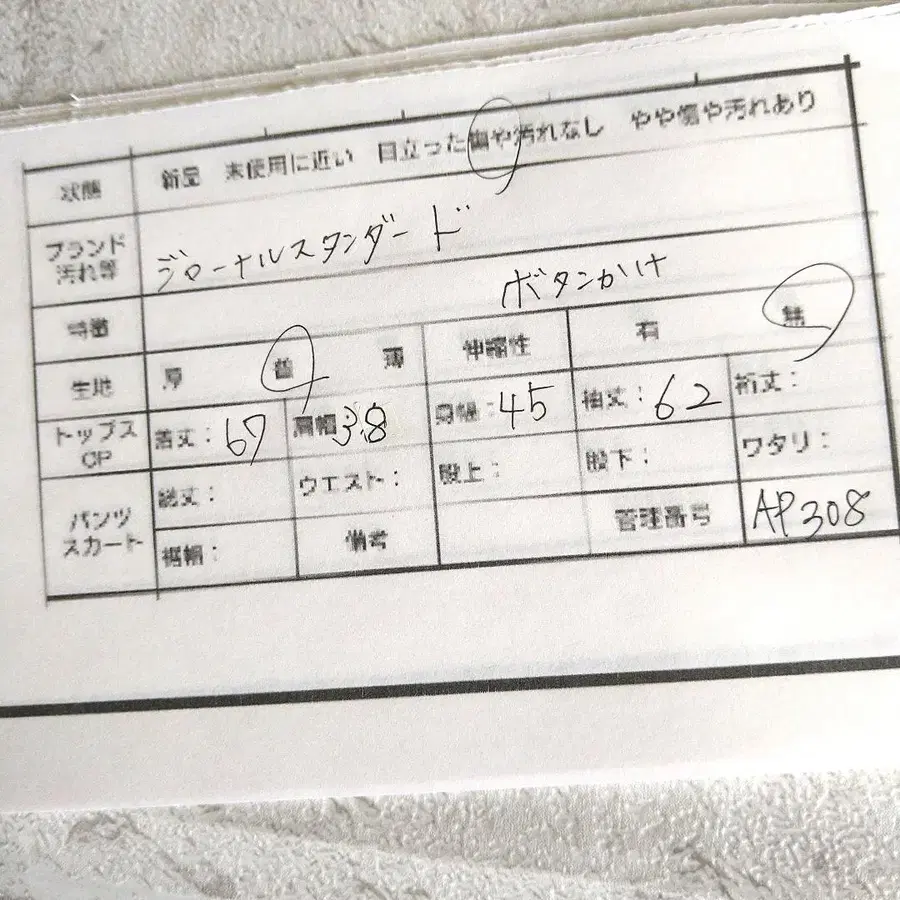 状態 新品 未使用に近い 目立った傷や汚れなし やや傷や汚れあり
ブランド
汚れ等
ジローナルスタンダード
ボタンかけ
特徴
生地 厚 普 薄 伸縮性 有 無
トップス
OP
着丈: 67 肩幅 38 身幅: 45 袖丈: 62 裄丈:
パンツ
スカート
総丈: ウエスト: 股上: 股下: ワタリ:
裾幅: 備考 管理番号 AP308